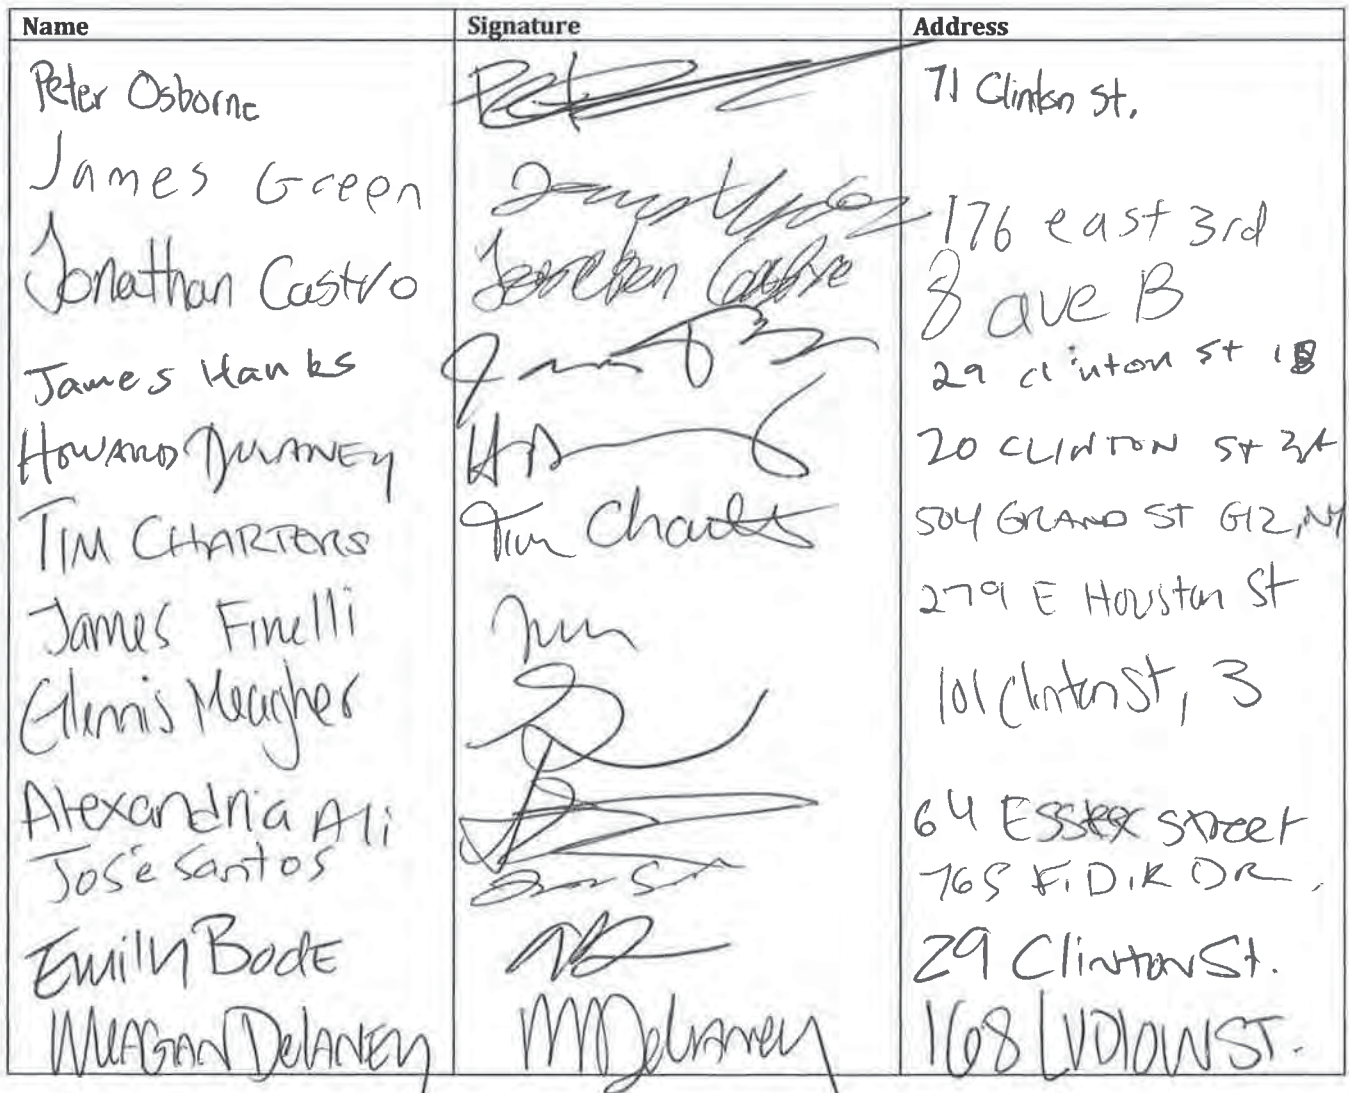 Name Signature Address
Peter Osborne 71 Clinton St.
James Green 176 east 3rd
Jonathan Castro Jonathan Castro 8 ave B
James Hanks 29 clinton St
HOWARD DULANEY 20 CLINTON St
TIM CHARTERS Tim Charters 504 GRAND ST G12, NY
James Finelli 279 E Houston St
Glennis Meagher 101 Clinton St, 3
Alexandria Ali 64 Essex street
José Santos 765 F.D.R DR.
Emily Bode 29 Clinton St.
MEAGAN DeLANEY MDelaney 168 LUDLOW ST.